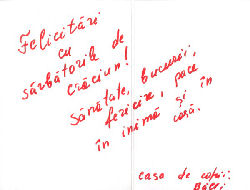 Felicitări
cu
sărbătorile de
Crăciun!
Sănătate, bucurii,
fericire, pace
în inimă și în
casă.
casa de copii